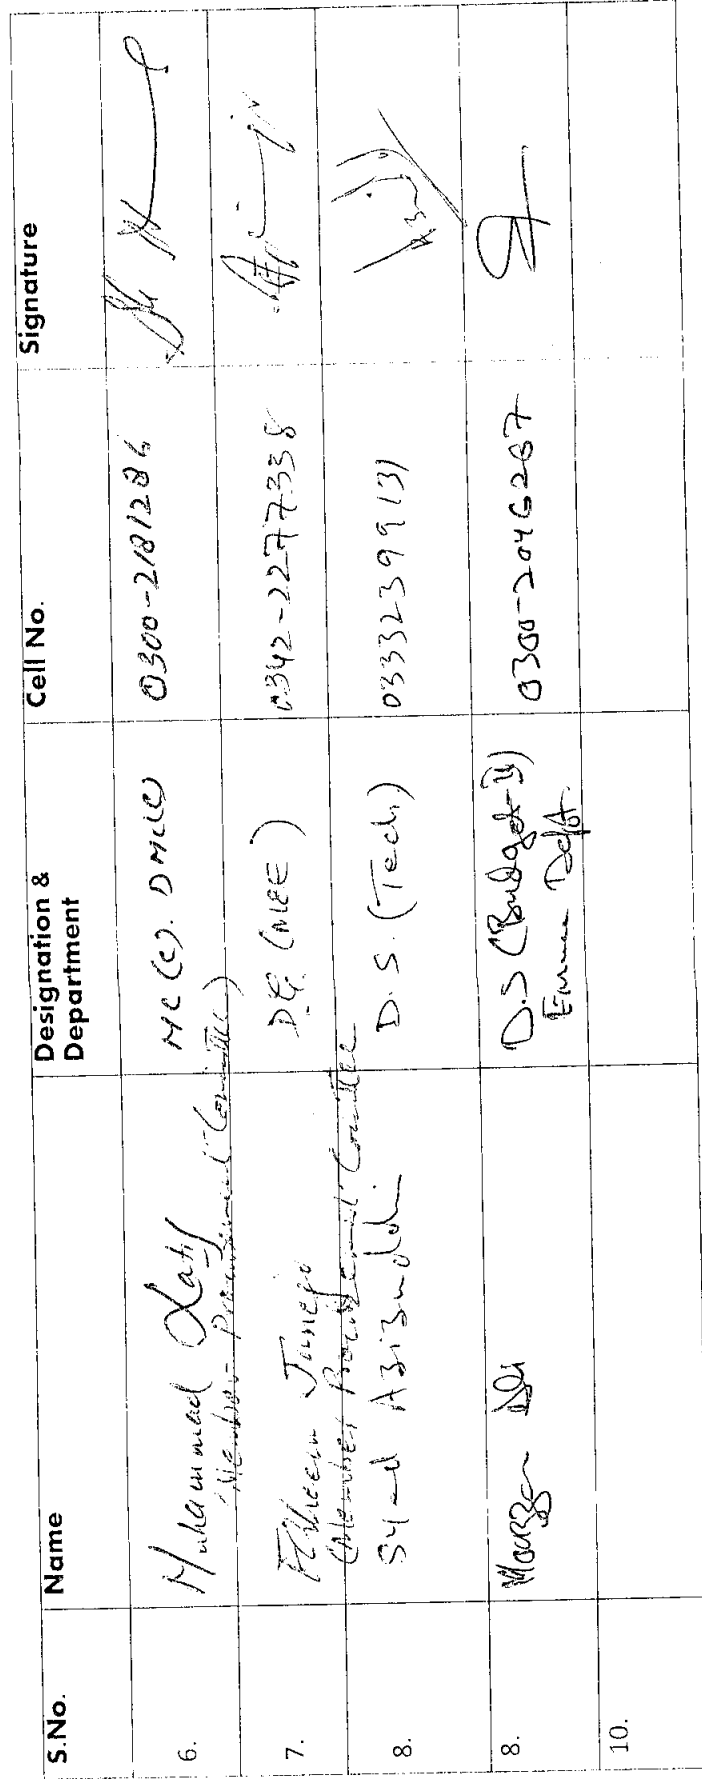 S.No.
Name
Designation &
Department
Cell No.
Signature
6.
Muhammad Latif
(Member - Procurement Committee)
MC (C). DMC(C)
0300-2181286
7.
Faheem Junejo
(Member Procurement Committee
D.G. (M&E)
0342-2277338
8.
Syed Azizuddin
D.S. (Tech.)
03332399131
8.
D.S (Budget-II)
Finance Deptt.
0300-2046267
10.